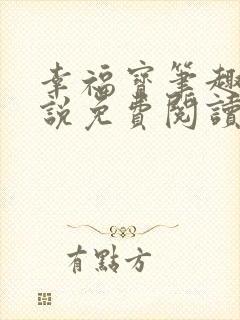 幸福寶筆趣
說免費閱讀
有點方